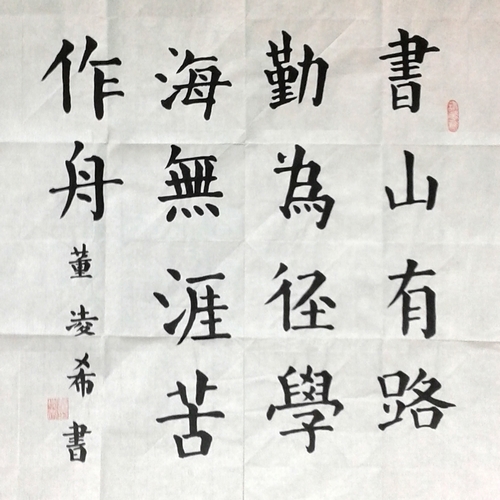 書山有路
勤為径學
海無涯苦
作舟
董凌希書